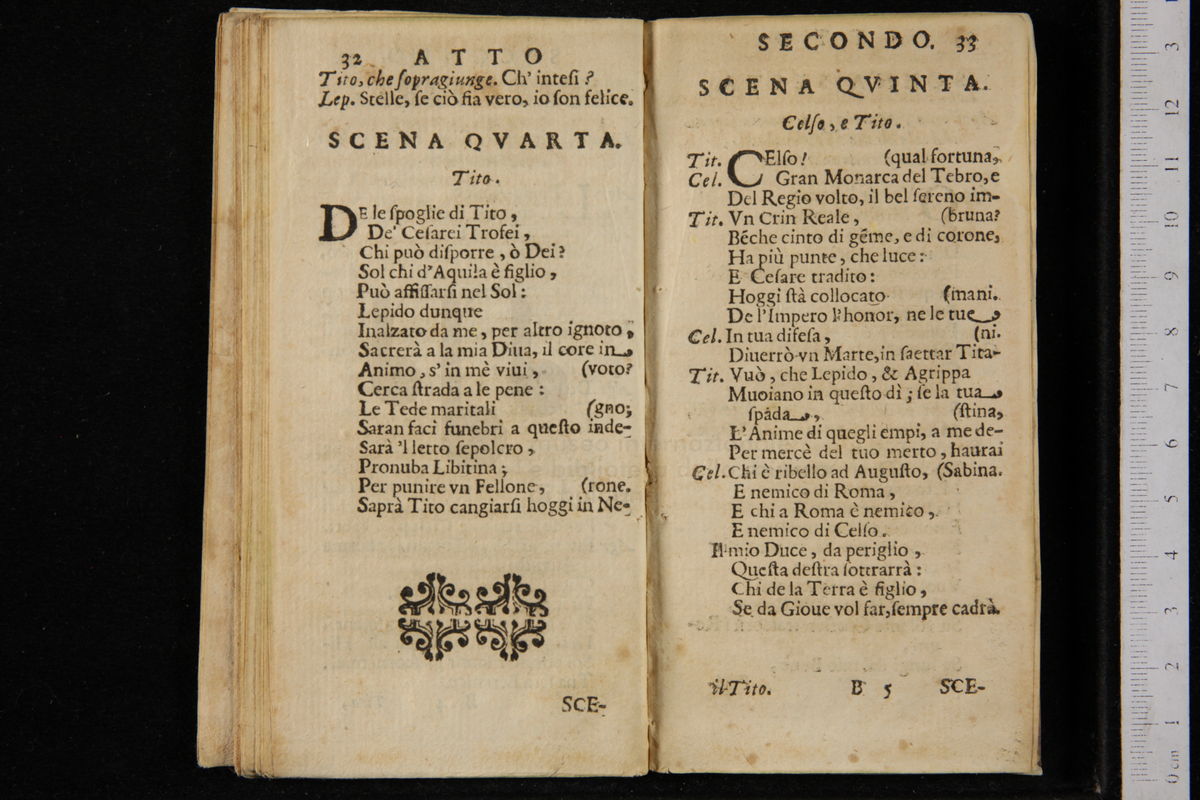 32 ATTO
Tito, che ſopragiunge. Ch' inteſi ?
Lep. Stelle, ſe ciò fia vero, io ſon felice.
SCENA QVARTA.
Tito.
DE le ſpoglie di Tito ,
De' Ceſarei Trofei ,
Chi può diſporre , ò Dei ?
Sol chi d'Aquila è figlio ,
Può affiſſarſi nel Sol :
Lepido dunque
Inalzato da me , per altro ignoto ,
Sacrerà a la mia Diua, il core in
Animo , s' in mè viui , (voto?
Cerca ſtrada a le pene :
Le Tede maritali (gno;
Saran faci funebri a queſto inde-
Sarà 'l letto ſepolcro ,
Pronuba Libitina ;
Per punire vn Fellone , (rone.
Saprà Tito cangiarſi hoggi in Ne-
SCE-
SECONDO. 33
SCENA QVINTA.
Celſo , e Tito .
Tit. CElſo ! (qual fortuna,
Cel. Gran Monarca del Tebro, e
Del Regio volto, il bel ſereno im-
Tit. Vn Crin Reale , (bruna?
Bẽche cinto di gẽme, e di corone,
Ha più punte , che luce :
E Ceſare tradito :
Hoggi ſtà collocato (mani.
De l'Impero l'honor, ne le tue ,
Cel. In tua difeſa , (ni.
Diuerrò vn Marte, in ſaettar Tita-
Tit. Vuò , che Lepido , & Agrippa
Muoiano in queſto dì ; ſe la tua
ſpada , (ſtina,
L'Anime di quegli empi, a me de-
Per mercè del tuo merto , haurai
Cel. Chi è ribello ad Auguſto, (Sabina.
E nemico di Roma ,
E chi a Roma è nemico ,
E nemico di Celſo .
Il mio Duce , da periglio ,
Queſta deſtra ſottrarrà :
Chi de la Terra è figlio ,
Se da Gioue vol far, ſempre cadrà.
il Tito. B 5 SCE-
0 cm 1 2 3 4 5 6 7 8 9 10 11 12 3